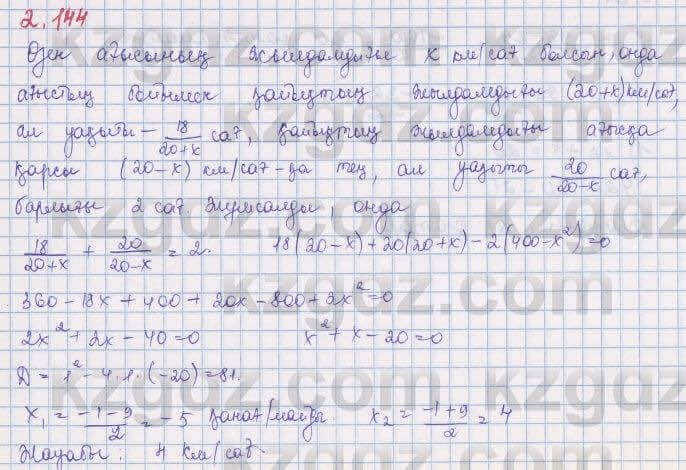 2.144
Өзен ағысының жылдамдығы x км/сағ болсын, онда
ағыстың бойымен қайықтың жылдамдығы (20+x) км/сағ,
ал уақыты – 18/(20+x) сағ, қайықтың жылдамдығы ағысқа
қарсы (20-x) км/сағ-қа тең, ал уақыты 20/(20-x) сағ,
барлығы 2 сағ. жұмсалды, онда
18/(20+x) + 20/(20-x) = 2. 18(20-x)+20(20+x)-2(400-x²)=0
360-18x+400+20x-800+2x²=0
2x²+2x-40=0 x²+x-20=0
D=1²-4·1·(-20)=81.
x₁=(-1-9)/2=-5 қанағ/майды x₂=(-1+9)/2=4
Жауабы: 4 км/сағ.
kzgdz.com